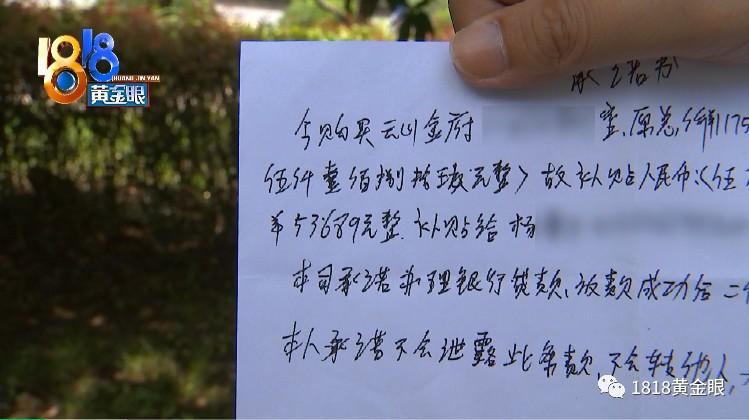 1818
HUANG JIN YAN
黄金眼
承诺书
今购买云山金府 壹,原总价1175
伍仟壹佰捌拾玖元整>故补贴人民币:<伍
币53689元整.补贴给杨
本司承诺办理银行贷款,放款成功后二个
本人承诺不会泄露此条款,不会转他人,
1818黄金眼